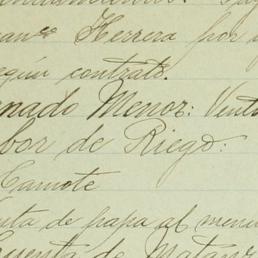 Herrera por
según contrato.
Menor: Vent
de Riego:
Camote
de papa al menu
uenta de Matan